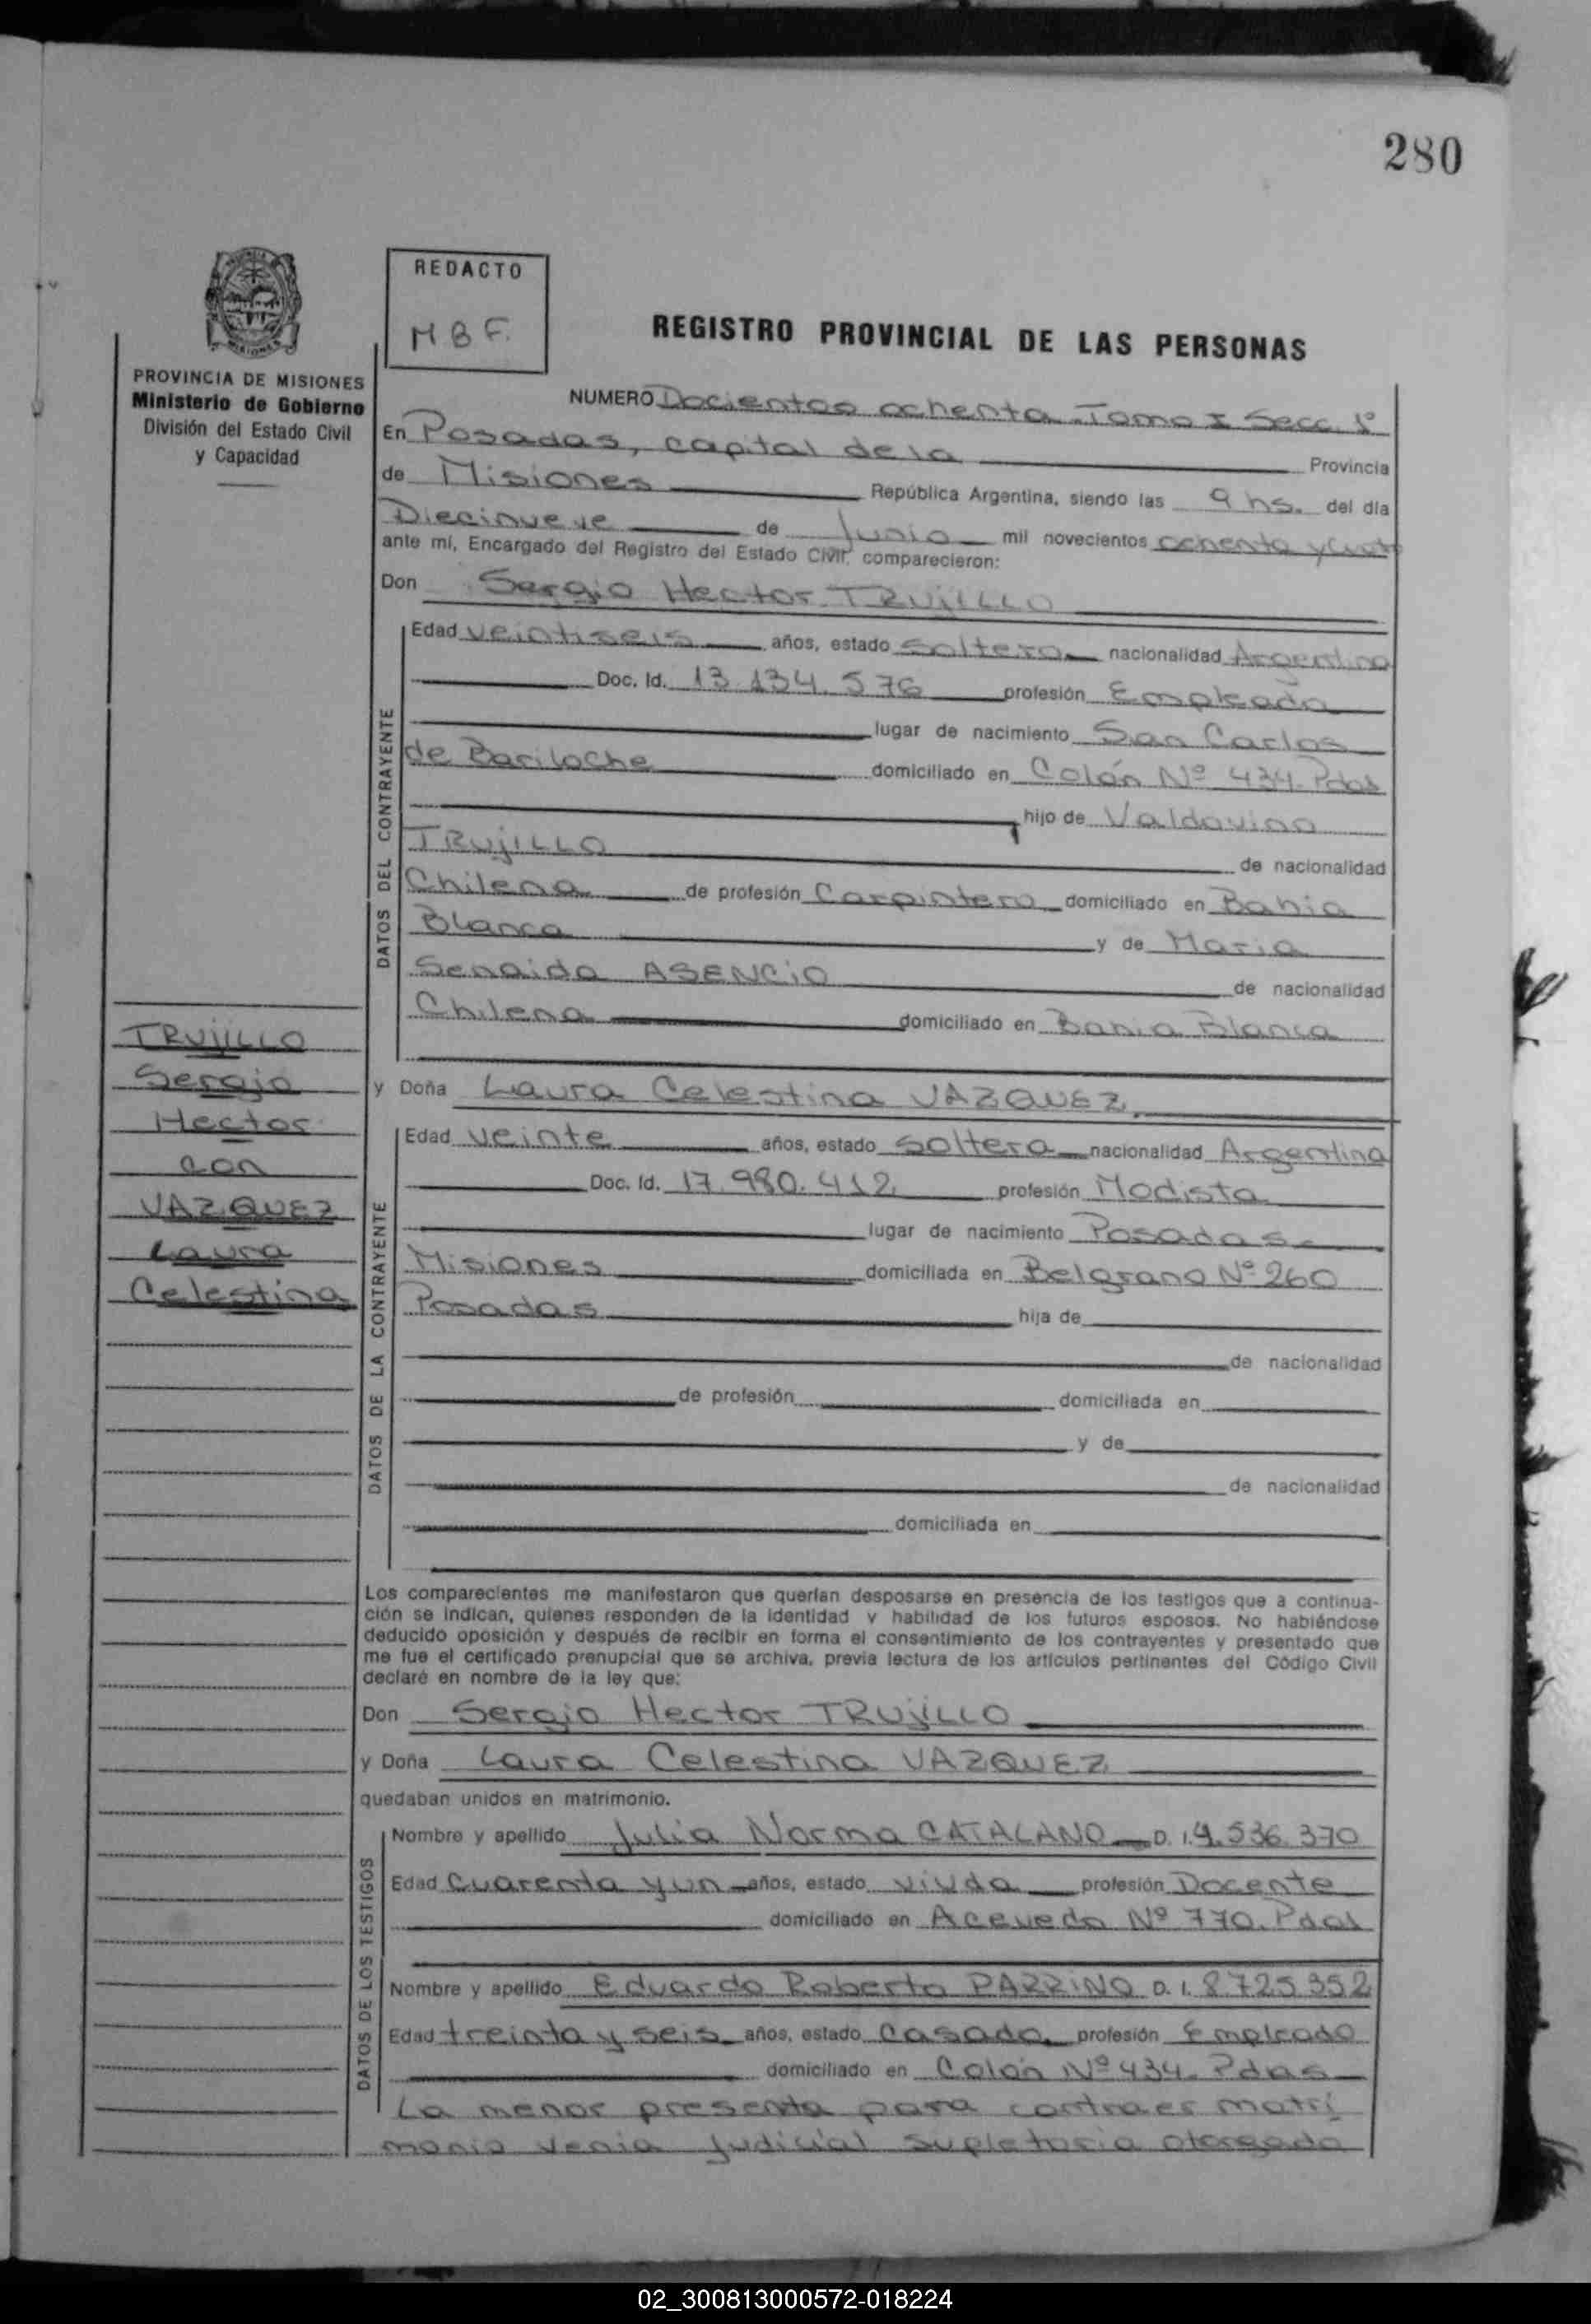 280
REDACTO
M B F.
REGISTRO PROVINCIAL DE LAS PERSONAS
PROVINCIA DE MISIONES
Ministerio de Gobierno
División del Estado Civil
y Capacidad
NUMERO Docientos ochenta. Tomo I Secc. 1º
En Posadas, capital de la Provincia
de Misiones República Argentina, siendo las 9 hs. del día
Diecinueve de Junio mil novecientos ochenta y
ante mí, Encargado del Registro del Estado Civil, comparecieron:
Don Sergio Hector TRUJILLO
DATOS DEL CONTRAYENTE
Edad veintiseis años, estado soltero nacionalidad Argentina
Doc. Id. 13.134.576 profesión Empleado
lugar de nacimiento San Carlos
de Bariloche domiciliado en Colón Nº 434. Pdas
hijo de Valdovino
TRUJILLO de nacionalidad
Chilena de profesión Carpintero domiciliado en Bahia
Blanca y de Maria
Senaida ASENCIO de nacionalidad
Chilena domiciliado en Bahia Blanca
TRUJILLO
Sergio
Hector
con
VAZQUEZ
Laura
Celestina
y Doña Laura Celestina VAZQUEZ
DATOS DE LA CONTRAYENTE
Edad veinte años, estado soltera nacionalidad Argentina
Doc. Id. 17.980.412 profesión Modista
lugar de nacimiento Posadas.
Misiones domiciliada en Belgrano Nº 260
Posadas hija de
de nacionalidad
de profesión domiciliada en
y de
de nacionalidad
domiciliada en
Los comparecientes me manifestaron que querían desposarse en presencia de los testigos que a continua-
ción se indican, quienes responden de la identidad y habilidad de los futuros esposos. No habiéndose
deducido oposición y después de recibir en forma el consentimiento de los contrayentes y presentado que
me fue el certificado prenupcial que se archiva, previa lectura de los artículos pertinentes del Código Civil
declaré en nombre de la ley que:
Don Sergio Hector TRUJILLO
y Doña Laura Celestina VAZQUEZ
quedaban unidos en matrimonio.
DATOS DE LOS TESTIGOS
Nombre y apellido Julia Norma CATALANO D. I. 4.536.370
Edad Cuarenta y un años, estado viuda profesión Docente
domiciliado en Acevedo Nº 770. Pdas
Nombre y apellido Eduardo Roberto PARRINO D. I. 8.725.352
Edad treinta y seis años, estado Casado profesión Empleado
domiciliado en Colón Nº 434. Pdas
La menor presenta para contraer matri
monio venia judicial supletoria otorgada
02_300813000572-018224